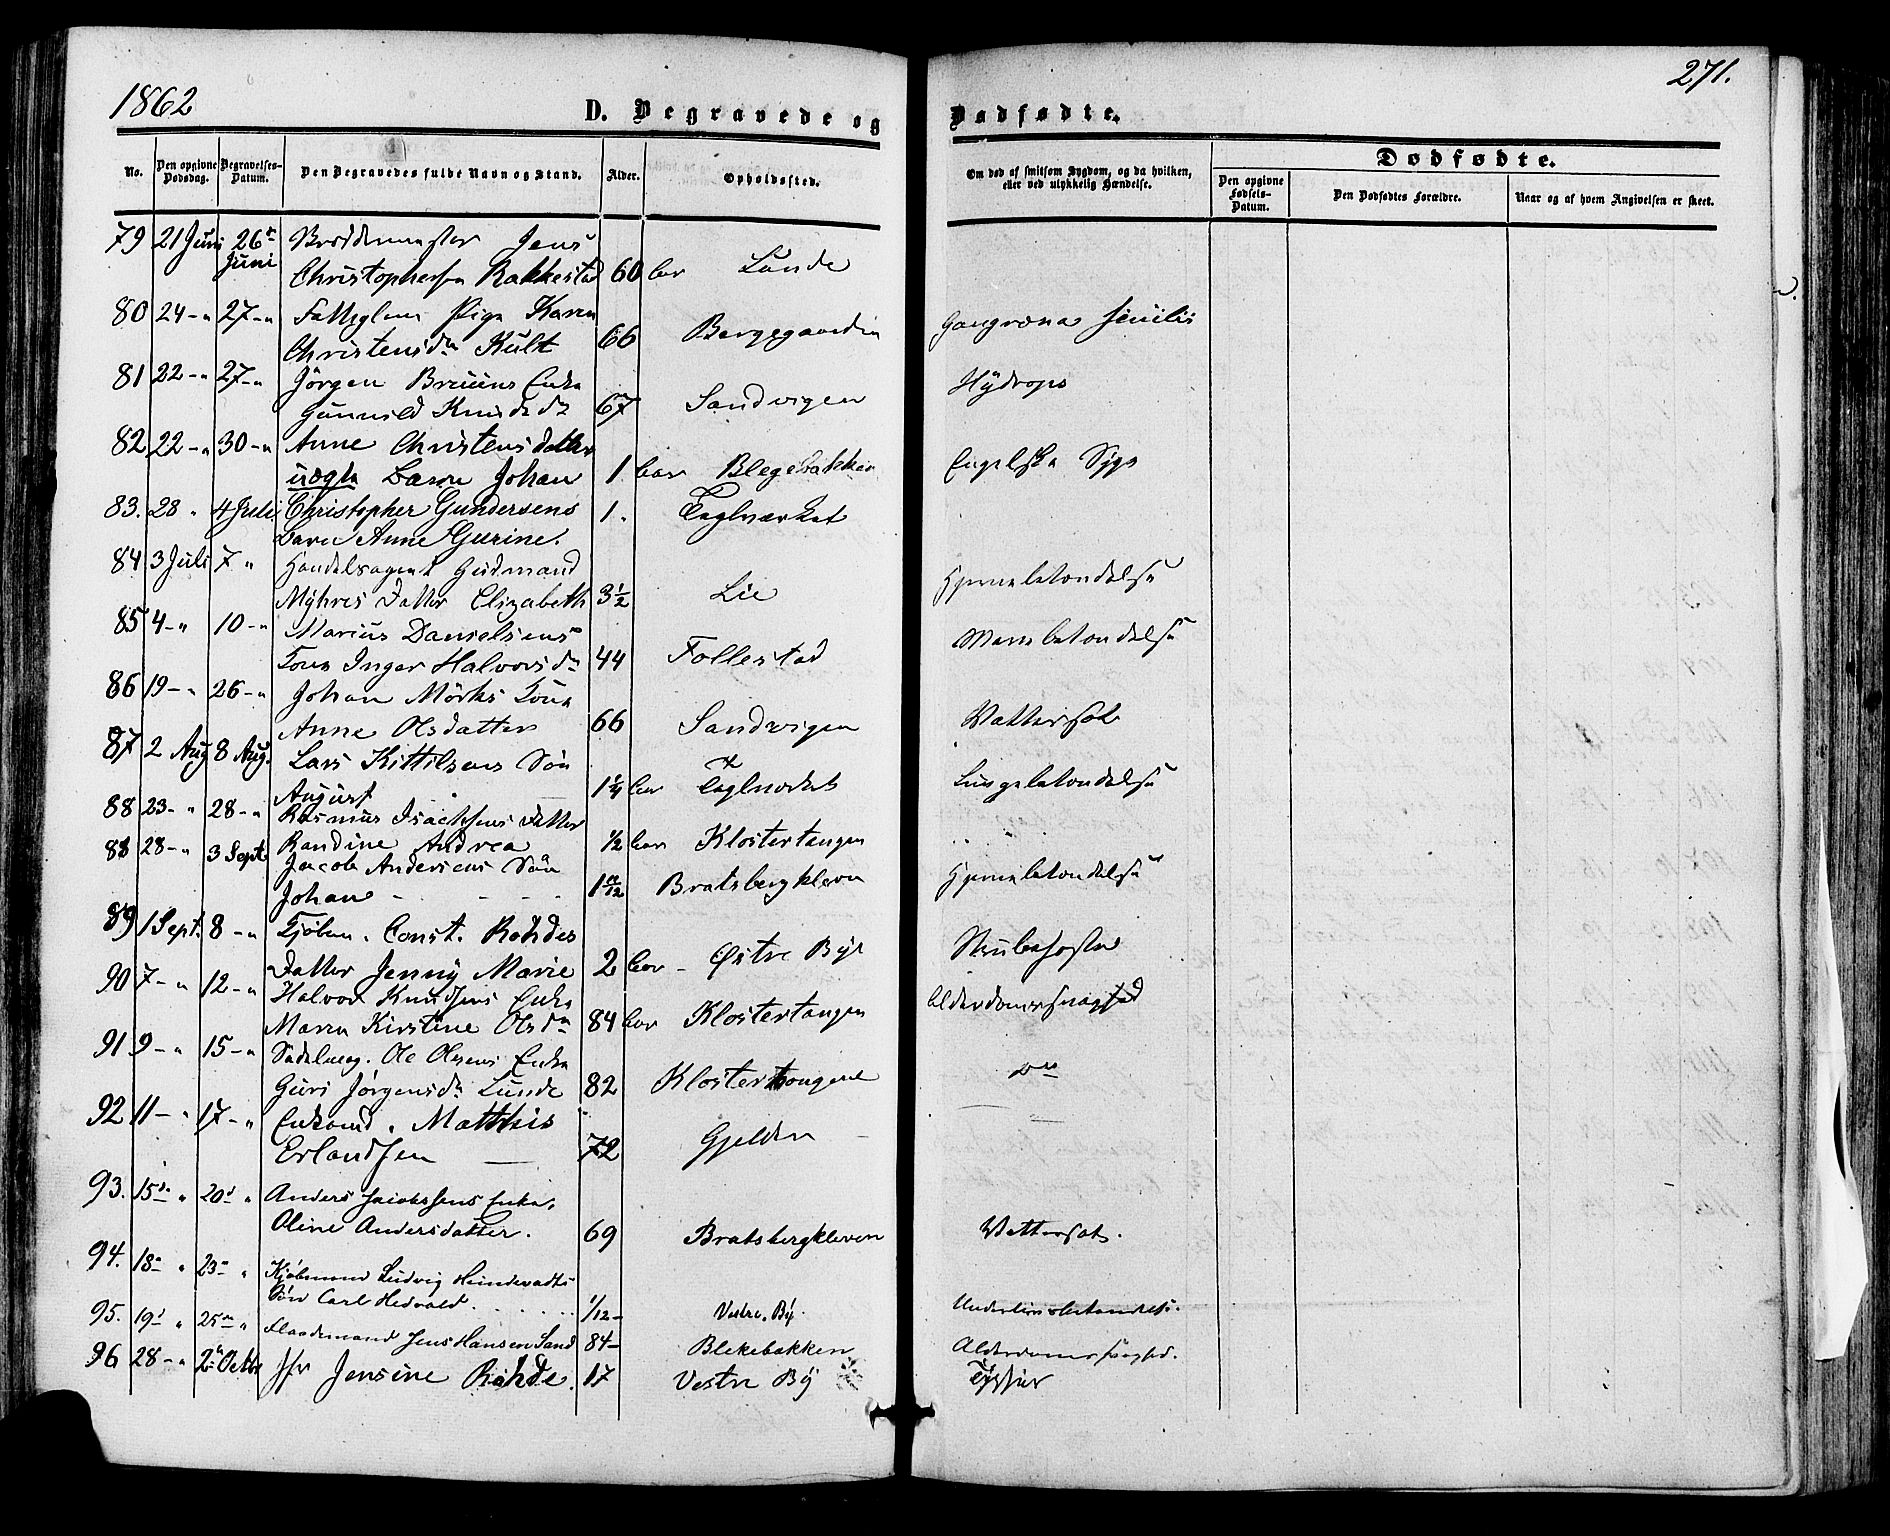 1862
271.
D. Begravede og Dødfødte.
No. Den opgivne Dødsdag. Begravelses-Datum. Den Begravedes fulde Navn og Stand. Alder. Opholdssted. Om død af smitsom Sygdom, og da hvilken, eller ved ulykkelig Hændelse.
Dødfødte.
Den opgivne Fødsels-Datum. Den Dødfødtes Forældre. Naar og af hvem Angivelsen er skeet.
79 21 Juni 26 Juni Jens
Christophersen Rakkestad 60 Lunde
80 24 - " 27 - " Fattiglem Pige Karen
Christensdr Kult 66 Bergsgaarden Gangræna senilis
81 22 - " 27 - " Jörgen Bruuns Enke
Gunnild Knudsdr 67 Sandvigen Hydrops
82 22 - " 30 - " Anne Christensdatter
uægte Barn Johan 1 Blegebakken Engelske Syge
83. 28 " 4 Juli Christopher Gundersens 1. Teglværket
Barn Anne Gurine.
84 3 Juli 7 " Handelsagent Gudmund
Myhres Datter Elizabeth 3 1/2 Lie Hjernebetændelse
85 4 - " 10 - " Marius Danielsens
Kone Inger Halvorsdr 44 Follestad
86 19 - " 26 - " Johan Mörks Kone
Anne Olsdatter 66 Sandvigen Vattersot
87 2 Aug 8 Aug. Lars Kittilsens Sön
August 1 1/4 Teglverket Lungebetændelse
88 23 - " 28 - " Rasmus Isachsens Datter
Randine Andrea 1/2 Klostertangen " "
88 28 - " 3 Sept Jacob Andersens Sön
Johan 1 Bratsbergkleven Hjernebetændelse
89 1 Sept. 8 - " Kjöbm. Const. Rohdes
Datter Jenny Marie 2 Østre By Strubehoste
90 7 - " 12 - " Halvor Knudsens Enke
Maren Kirstine Olsdr 84 Klostertangen Alderdomssvaghed
91 9 - " 15 - " Sadelmag. Ole Olsens Enke
Guri Jørgensdr Lunde 82 Klostertangen do
92 11 - " 17 - " Enkemand. Matthis
Erlandsen 72 Gjelden
93. 15d " 20d " Anders Jacobsens Enke,
Oline Andersdatter. 69 Bratsbergkleven Vattersot.
94. 18 " 23 " Kjöbmand Ludvig
Sön Carl Hedvald 1/12 - Vestre By.
95. 19 " 25 " Jens Hansen Sand 84 - Blekebakken Alderdomssvaghed.
96 28 - " 2 Octbr Jfr Jensine Rohde. 17 Vestre By